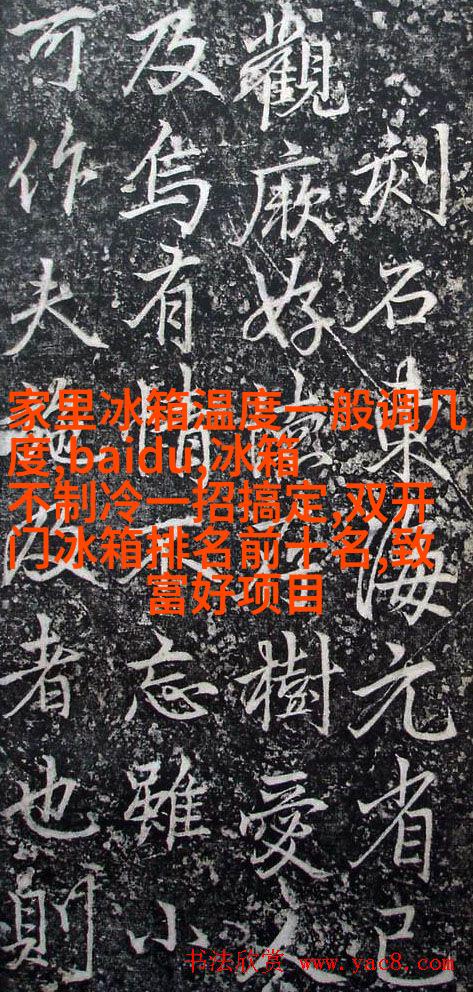 刻石東海元省己
觀厥好樹愛
及焉有情不忘雖小
可作夫者也則
家里冰箱温度一般调几
度,baidu,冰箱
不制冷一招搞定,双开
门冰箱排名前十名,致
富好项目
书法欣赏 www.yac8.com